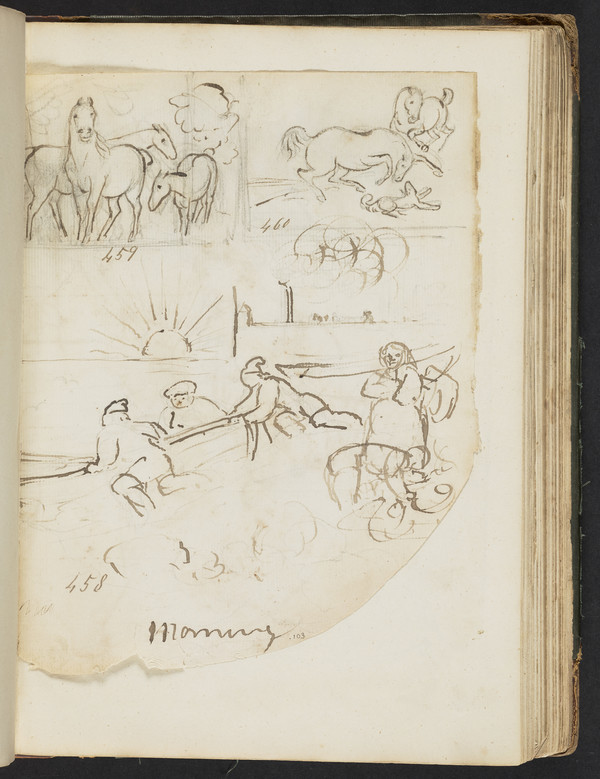 459
460
458
Morning
103